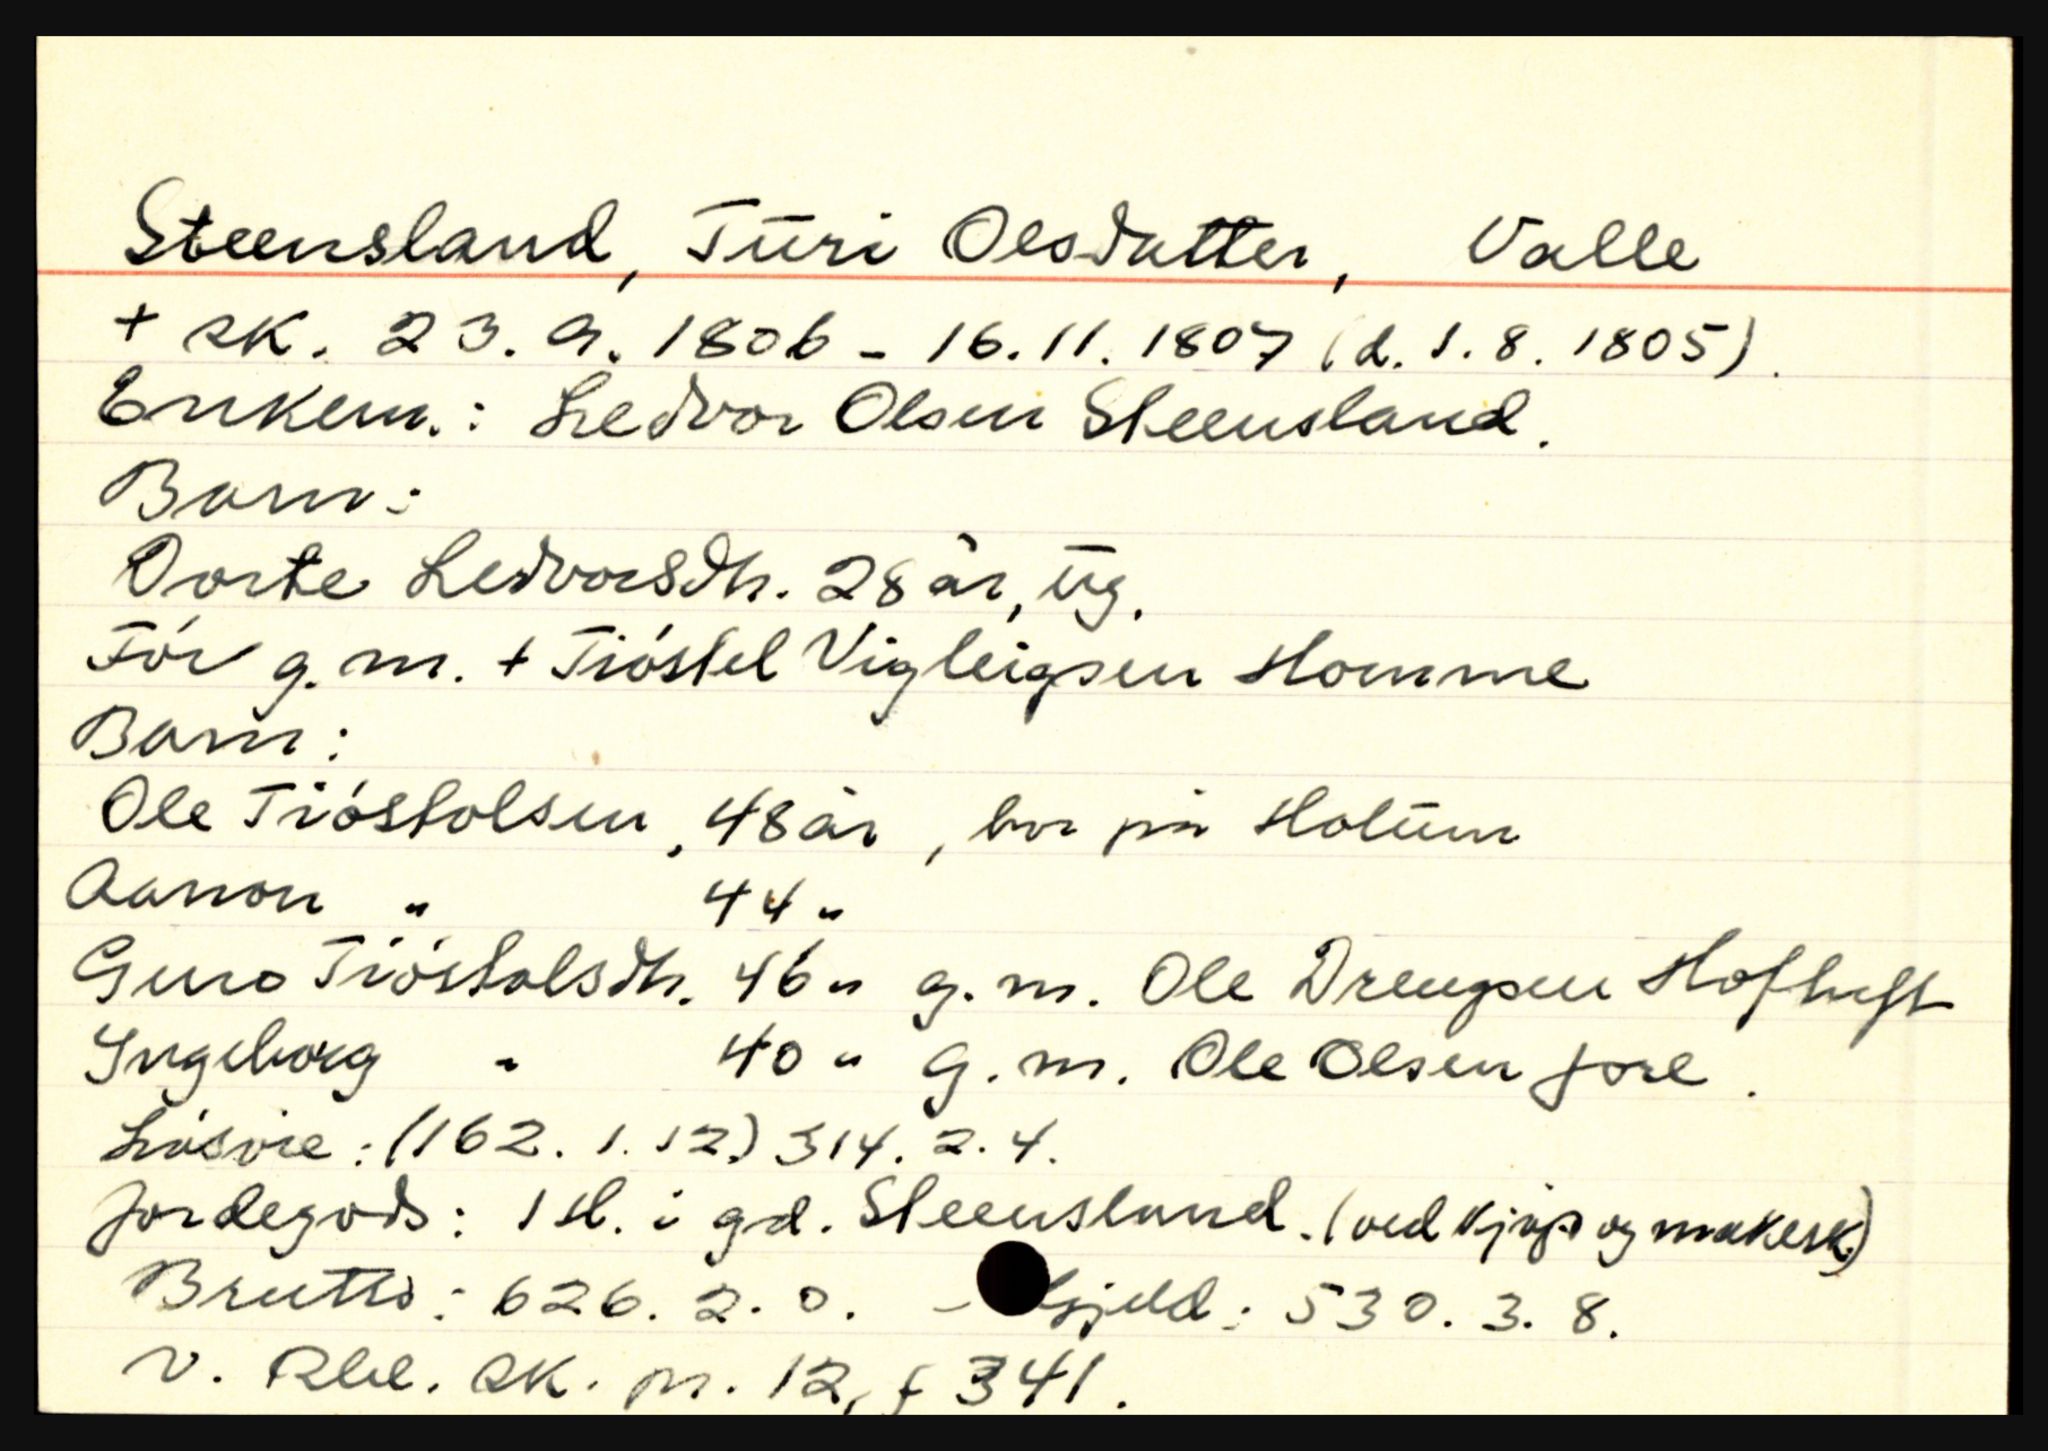 Steensland, Tūri Olsdatter, Valle
+ sk. 23.9.1806 - 16.11.1807 (d. 1.8.1805).
Enkem.: Ledvor Olsen Steensland.
Barn:
Dorte Ledvorsdtr. 28 år, ūg.
Før g. m. + Tióstel Vigleigsen Homme
Barn:
Ole Tióstolsen, 48 år, bor på Hotūm
Aanon " 44 "
Guro Tióstolsdtr. 46 " g. m. Ole Drengsen
Ingeborg " 40 " g. m. Ole Olsen Jore.
Lósöre: (162. 1. 12) 314. 2. 4.
Jordegods: 1 h. i gd. Steensland. (ved kjøp og makesk.)
Brutto: 626. 2. 0. - Gjeld: 530. 3. 8.
V. Rbl. sk. pr. 12, f 341.